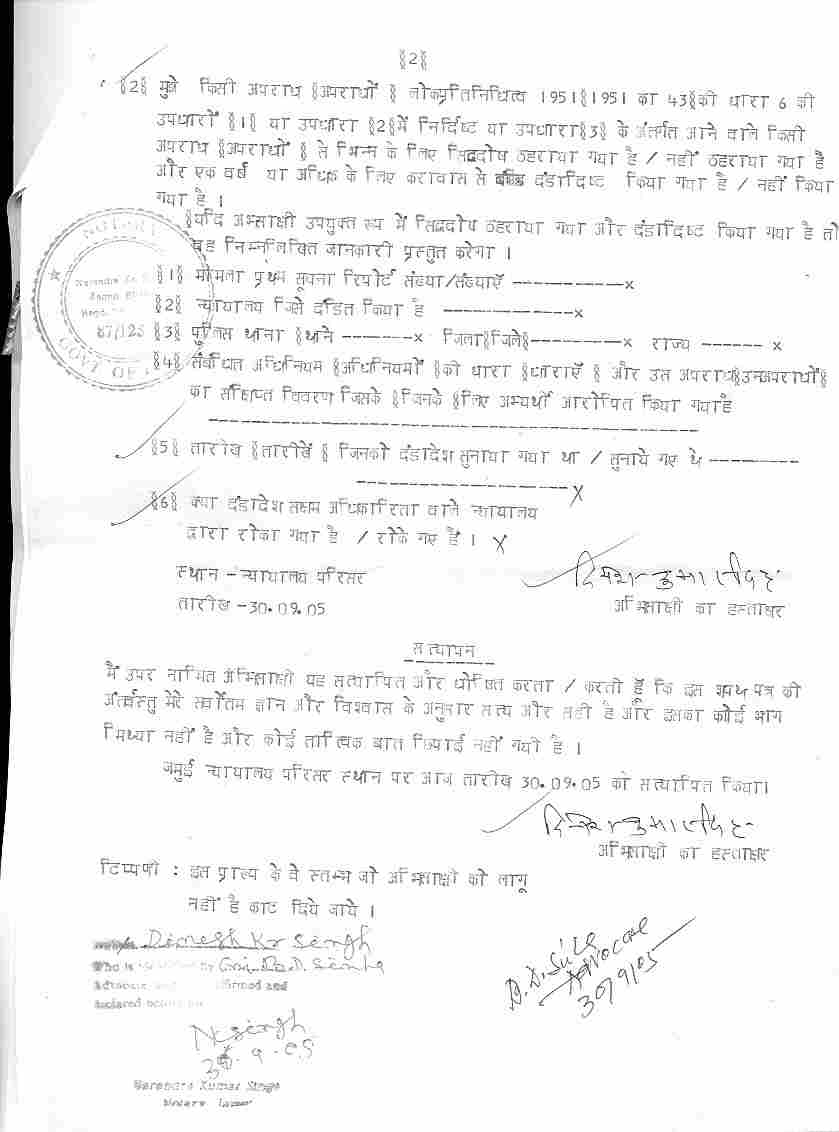 §2§
§2§ मुझे किसी अपराध §अपराधों § लोकप्रतिनिधित्व 1951§1951 का 43§की धारा 6 की
उपधारों §1§ या उपधारा §2§में निर्दिष्ट या उपधारा§3§ के अंतर्गत आने वाले किसी
अपराध §अपराधों § से भिन्न के लिए सिद्धदोष ठहराया गया है / नहीं ठहराया गया है
और एक वर्ष या अधिक के लिए करावास से दंडादिष्ट किया गया है / नहीं किया
गया है ।
§यदि अभिसाक्षी उपयुक्त रूप में सिद्धदोष ठहराया गया और दंडादिष्ट किया गया है तो
वह निम्नलिखित जानकारी प्रस्तुत करेगा ।
§1§ मामला प्रथम सूचना रिपोर्ट संख्या/संख्याएँ ------------x
§2§ न्यायालय जिसे दंडित किया है --------------x
§3§ पुलिस थाना §थाने --------x जिला§जिले§----------x राज्य ------ x
§4§ संबंधित अधिनियम §अधिनियमों §की धारा §धाराएँ § और उस अपराध§उनअपराधों§
का संक्षिप्त विवरण जिसके §जिनके §लिए अभ्यर्थी आरोपित किया गयाहै
§5§ तारीख §तारीखें § जिनको दंडादेश सुनाया गया था / सुनाये गए थे ----------
-----------------------X
§6§ क्या दंडादेश सक्षम अधिकारिता वाले न्यायालय
द्वारा रोका गया है / रोके गए हैं । X
स्थान - न्यायालय परिसर
तारीख -30.09.05
अभिसाक्षी का हस्ताक्षर
सत्यापन
मैं उपर नामित अभिसाक्षी यह सत्यापित और घोषित करता / करती हूँ कि इस शपथ पत्र की
अंतर्वस्तु मेरे सर्वोतम ज्ञान और विश्वास के अनुसार सत्य और सही है और इसका कोई भाग
मिथ्या नहीं है और कोई तात्विक बात छिपाई नहीं गयी है ।
जमुई न्यायालय परिसर स्थान पर आज तारीख 30.09.05 को सत्यापित किया।
अभिसाक्षी का हस्ताक्षर
टिप्पणी : इस प्रारूप के वे स्तम्भ जो अभिसाक्षी को लागू
नहीं है काट दिये जाये ।
Dinesh Kr Singh
Who is
declared before me
N K Singh
30.9.05
Narendra Kumar Singh
Advocate
30/9/05
NOTARY
Narendra
87/125
GOVT OF